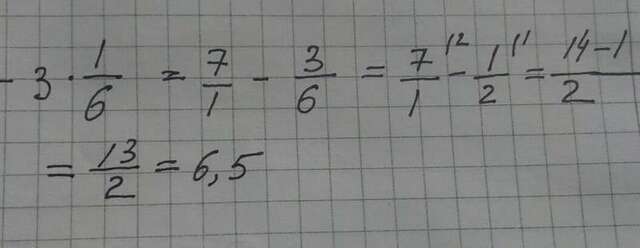 - 3 · 1/6 = 7/1 - 3/6 = 7/1 |2 - 1/2 |1 = 14-1/2
= 13/2 = 6,5